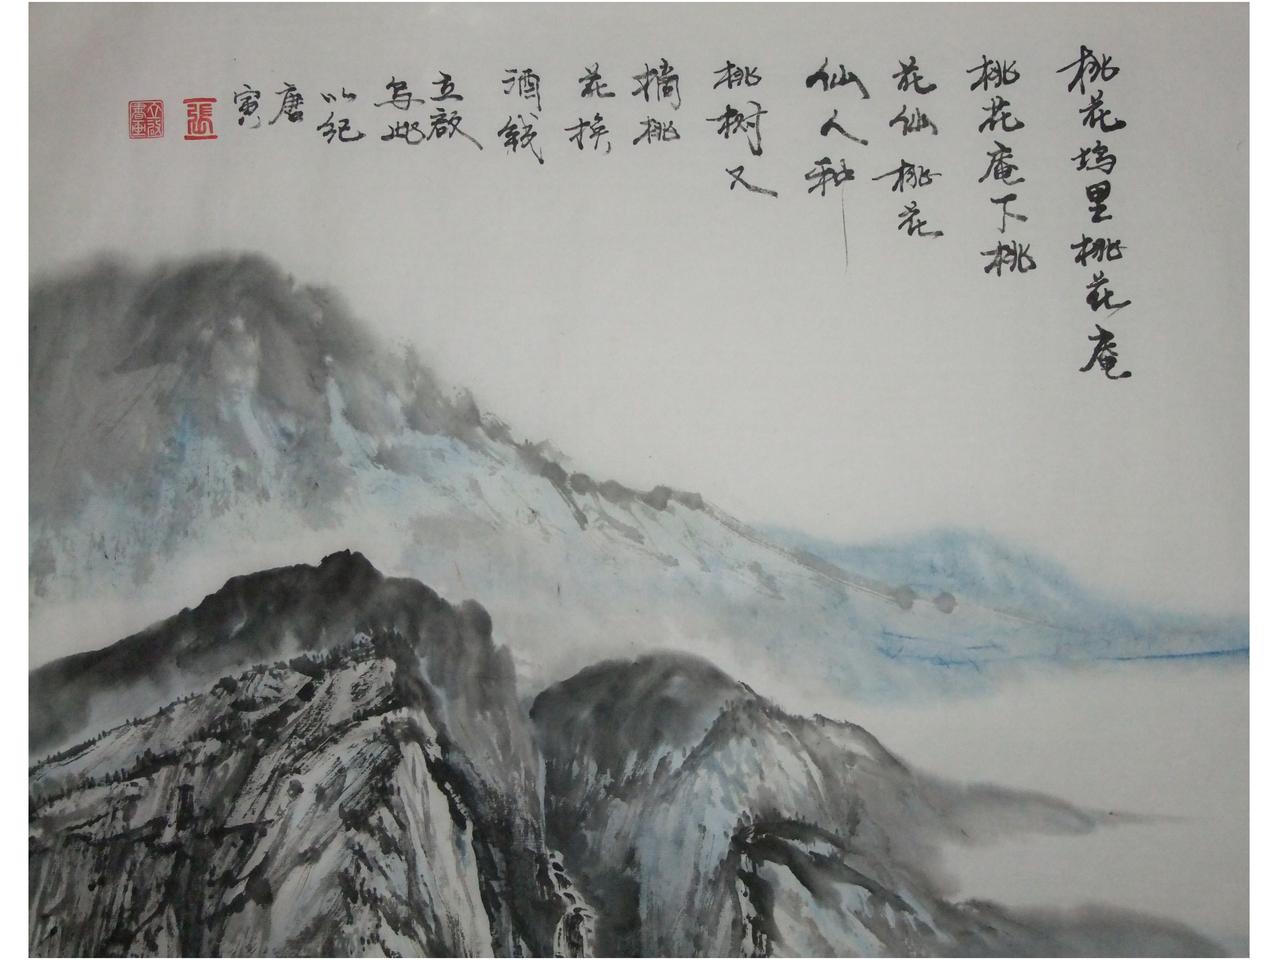 桃花坞里桃花庵
桃花庵下桃
花仙桃花
仙人种
桃树又
摘桃
花换
酒钱
立啟
写此
以纪
唐
寅
張